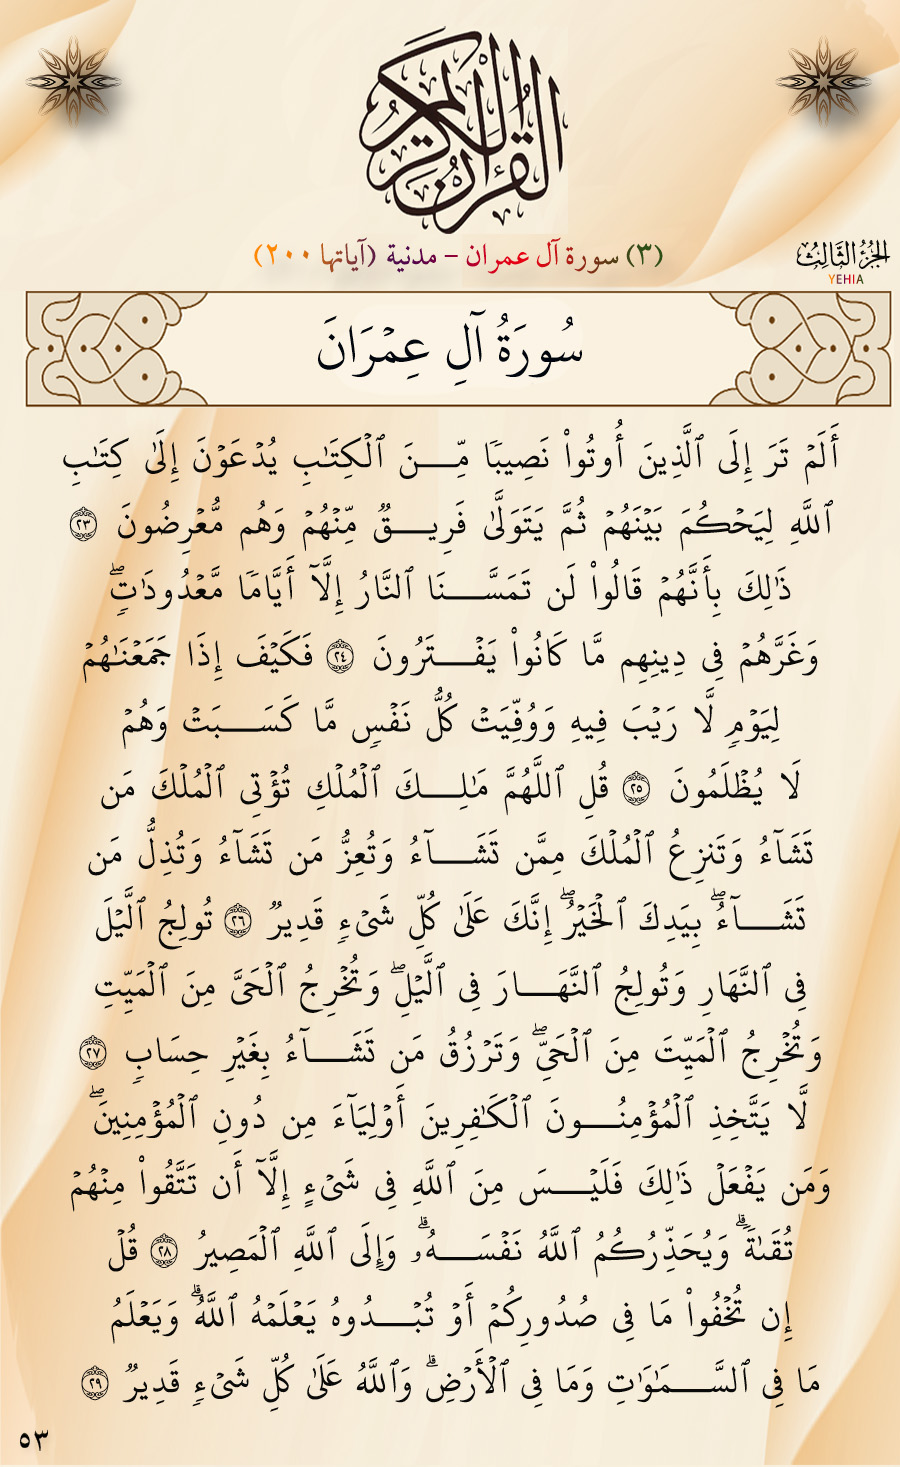 القرآن الكريم
(٣) سورة آل عمران – مدنية (آياتها ٢٠٠)
الجزء الثالث
YEHIA
سُورَةُ آلِ عِمۡرَانَ
أَلَمۡ تَرَ إِلَى ٱلَّذِينَ أُوتُواْ نَصِيبٗا مِّنَ ٱلۡكِتَٰبِ يُدۡعَوۡنَ إِلَىٰ كِتَٰبِ
ٱللَّهِ لِيَحۡكُمَ بَيۡنَهُمۡ ثُمَّ يَتَوَلَّىٰ فَرِيقٞ مِّنۡهُمۡ وَهُم مُّعۡرِضُونَ ٢٣
ذَٰلِكَ بِأَنَّهُمۡ قَالُواْ لَن تَمَسَّنَا ٱلنَّارُ إِلَّآ أَيَّامٗا مَّعۡدُودَٰتٖۖ
وَغَرَّهُمۡ فِي دِينِهِم مَّا كَانُواْ يَفۡتَرُونَ ٢٤ فَكَيۡفَ إِذَا جَمَعۡنَٰهُمۡ
لِيَوۡمٖ لَّا رَيۡبَ فِيهِ وَوُفِّيَتۡ كُلُّ نَفۡسٖ مَّا كَسَبَتۡ وَهُمۡ
لَا يُظۡلَمُونَ ٢٥ قُلِ ٱللَّهُمَّ مَٰلِكَ ٱلۡمُلۡكِ تُؤۡتِي ٱلۡمُلۡكَ مَن
تَشَآءُ وَتَنزِعُ ٱلۡمُلۡكَ مِمَّن تَشَآءُ وَتُعِزُّ مَن تَشَآءُ وَتُذِلُّ مَن
تَشَآءُۖ بِيَدِكَ ٱلۡخَيۡرُۖ إِنَّكَ عَلَىٰ كُلِّ شَيۡءٖ قَدِيرٞ ٢٦ تُولِجُ ٱلَّيۡلَ
فِي ٱلنَّهَارِ وَتُولِجُ ٱلنَّهَارَ فِي ٱلَّيۡلِۖ وَتُخۡرِجُ ٱلۡحَيَّ مِنَ ٱلۡمَيِّتِ
وَتُخۡرِجُ ٱلۡمَيِّتَ مِنَ ٱلۡحَيِّۖ وَتَرۡزُقُ مَن تَشَآءُ بِغَيۡرِ حِسَابٖ ٢٧
لَّا يَتَّخِذِ ٱلۡمُؤۡمِنُونَ ٱلۡكَٰفِرِينَ أَوۡلِيَآءَ مِن دُونِ ٱلۡمُؤۡمِنِينَۖ
وَمَن يَفۡعَلۡ ذَٰلِكَ فَلَيۡسَ مِنَ ٱللَّهِ فِي شَيۡءٍ إِلَّآ أَن تَتَّقُواْ مِنۡهُمۡ
تُقَىٰةٗۗ وَيُحَذِّرُكُمُ ٱللَّهُ نَفۡسَهُۥۗ وَإِلَى ٱللَّهِ ٱلۡمَصِيرُ ٢٨ قُلۡ
إِن تُخۡفُواْ مَا فِي صُدُورِكُمۡ أَوۡ تُبۡدُوهُ يَعۡلَمۡهُ ٱللَّهُۗ وَيَعۡلَمُ
مَا فِي ٱلسَّمَٰوَٰتِ وَمَا فِي ٱلۡأَرۡضِۗ وَٱللَّهُ عَلَىٰ كُلِّ شَيۡءٖ قَدِيرٞ ٢٩
٥٣